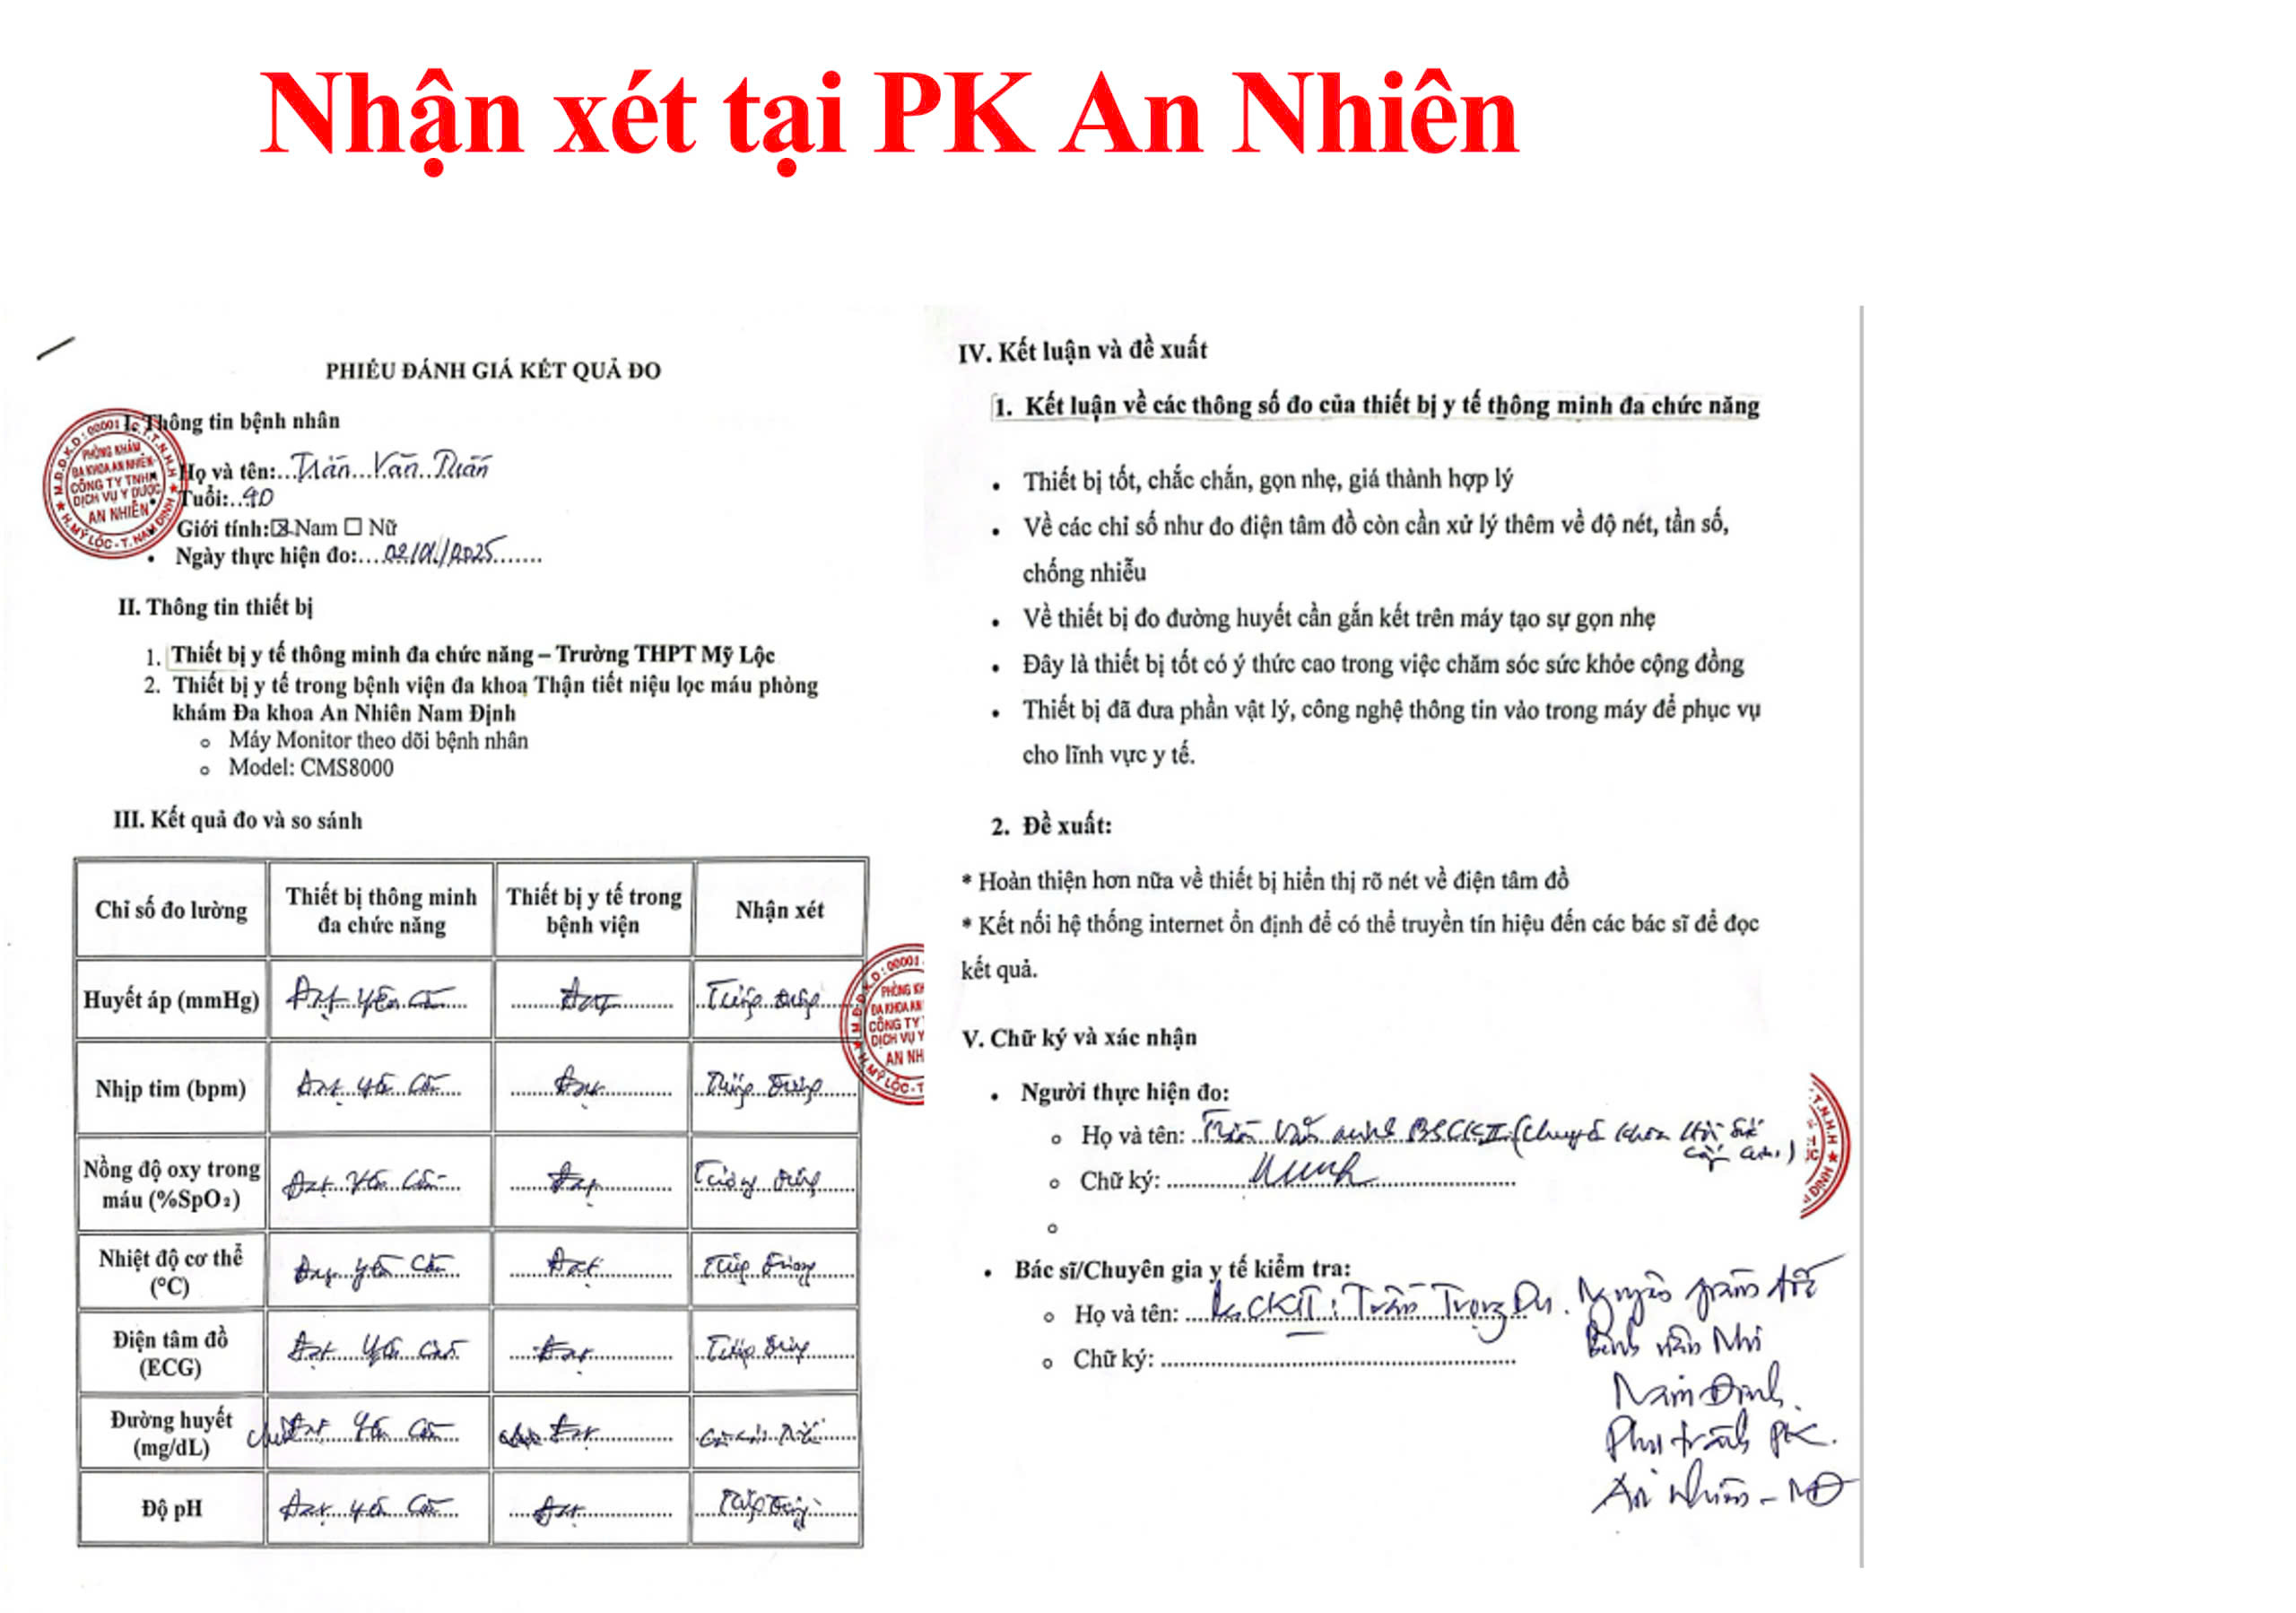 Nhận xét tại PK An Nhiên
PHIẾU ĐÁNH GIÁ KẾT QUẢ ĐO
I. Thông tin bệnh nhân
Họ và tên: Trần Văn Tuấn
Tuổi:
Giới tính: ☒ Nam ☐ Nữ
Ngày thực hiện đo: /2025
II. Thông tin thiết bị
1. Thiết bị y tế thông minh đa chức năng – Trường THPT Mỹ Lộc
2. Thiết bị y tế trong bệnh viện đa khoa Thận tiết niệu lọc máu phòng
khám Đa khoa An Nhiên Nam Định
Máy Monitor theo dõi bệnh nhân
Model: CMS8000
III. Kết quả đo và so sánh
Chỉ số đo lường
Thiết bị thông minh
đa chức năng
Thiết bị y tế trong
bệnh viện
Nhận xét
Huyết áp (mmHg) Đạt yêu cầu Đạt Tương đương
Nhịp tim (bpm) Đạt yêu cầu Đạt Tương đương
Nồng độ oxy trong
máu (%SpO₂) Đạt yêu cầu Đạt Tương đương
Nhiệt độ cơ thể
(°C) Đạt yêu cầu Đạt Tương đương
Điện tâm đồ
(ECG) Đạt yêu cầu Đạt Tương đương
Đường huyết
(mg/dL) Đạt yêu cầu Đạt
Độ pH Đạt yêu cầu Đạt Tương đương
M.S.D.K.D: 00001 C.T.T.N.H.H
PHÒNG KHÁM
ĐA KHOA AN NHIÊN
CÔNG TY TNHH
DỊCH VỤ Y DƯỢC
AN NHIÊN
H.MỸ LỘC - T. NAM ĐỊNH
IV. Kết luận và đề xuất
1. Kết luận về các thông số đo của thiết bị y tế thông minh đa chức năng
Thiết bị tốt, chắc chắn, gọn nhẹ, giá thành hợp lý
Về các chỉ số như đo điện tâm đồ còn cần xử lý thêm về độ nét, tần số,
chống nhiễu
Về thiết bị đo đường huyết cần gắn kết trên máy tạo sự gọn nhẹ
Đây là thiết bị tốt có ý thức cao trong việc chăm sóc sức khỏe cộng đồng
Thiết bị đã đưa phần vật lý, công nghệ thông tin vào trong máy để phục vụ
cho lĩnh vực y tế.
2. Đề xuất:
* Hoàn thiện hơn nữa về thiết bị hiển thị rõ nét về điện tâm đồ
* Kết nối hệ thống internet ổn định để có thể truyền tín hiệu đến các bác sĩ để đọc
kết quả.
V. Chữ ký và xác nhận
Người thực hiện đo:
Họ và tên: Trần Văn BSCKII (Chuyên khoa Hồi sức
cấp cứu)
Chữ ký:
Bác sĩ/Chuyên gia y tế kiểm tra:
Họ và tên: Bs.CKII: Trần Trọng Nguyên giám đốc
Bệnh viện Nhi
Nam Định.
Phụ trách PK.
An Nhiên - NĐ
Chữ ký: